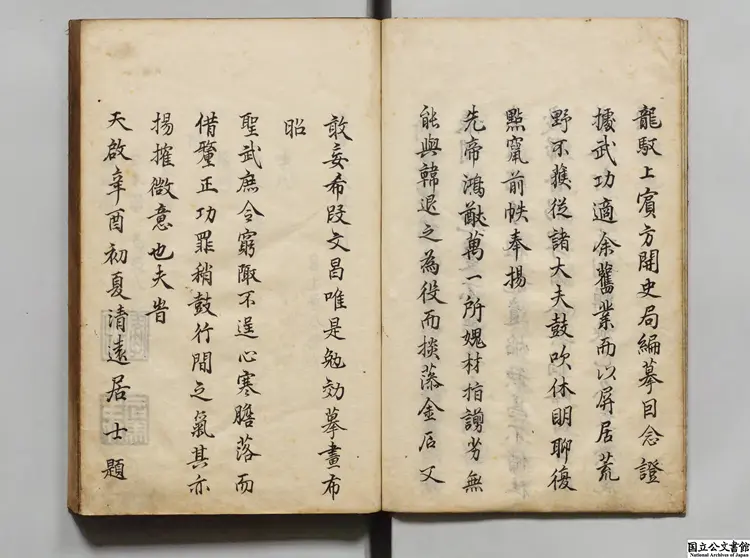 龍馭上賓方開史局編摹目念證
據武功適余舊業而以屏居荒
野不獲從諸大夫鼓吹休明聊復
點竄前帙奉揚
先帝鴻猷萬一所媿材拍謭劣無
能與韓退之為役而掞藻金石又
敢妄希段文昌唯是勉効摹畫布
昭
聖武庶令窮陬不逞心寒膽落而
借釐正功罪稍鼓行間之氣其亦
揚搉微意也夫旹
天啟辛酉初夏清遠居士題
国立公文書館
National Archives of Japan